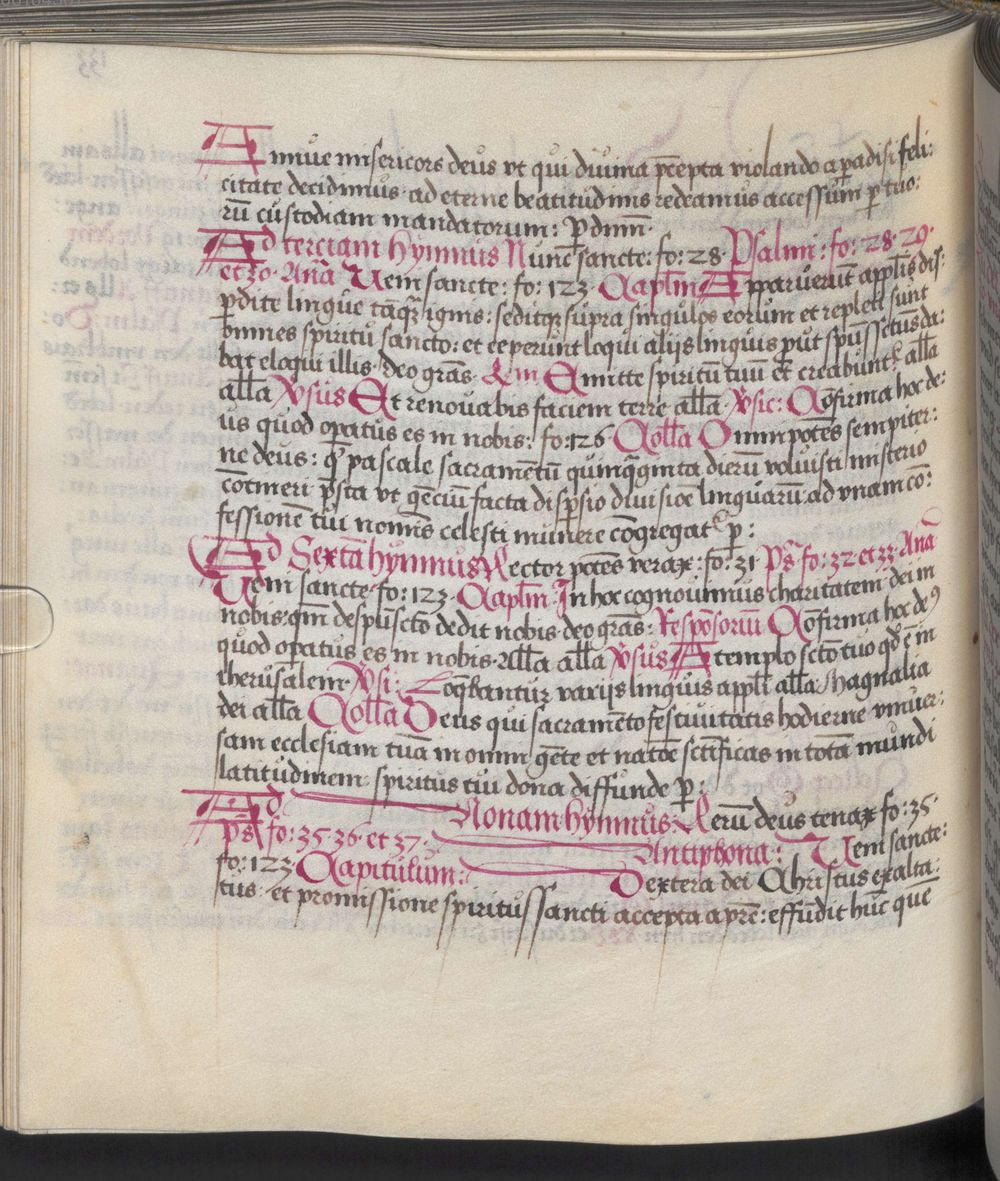 Annue misericors deus vt qui diuina p̄cepta violando a paradisi feli:
citate decidimus· ad eterne beatitudinis redeamus accessum p̱ tuo:
rū custodiam mandatorum: P̱ dn̄m̄·
Ad terciam hymnus Nunc sancte: fo: 28· Psalm: fo: 28· 29·
et 30· Anā Veni sancte: fo: 123· Capl̄m Apparuerūt appl̄is dis:
p̱dite lingue tāqꝫ ignis: seditqꝫ supra singulos eorum et repleti sunt
omnes spiritu sancto: et ceperunt loqui alijs linguis put spūs sctūs da:
bat eloqui illis· deo grās· Emitte spiritū tuū et creabunt᷑ all̄a
all̄a v̄sus Et renouabis faciem terre all̄a· v̄sic: Cōfirma hoc de:
us quod op̱atus es in nobis: fo: 126 Coll̄a Omnipotēs sempiter:
ne deus: q̄ pascale sacramentū quinq̄ginta dierū voluisti misterio
cōtineri p̄sta vt gēciū facta disp̱sio diuisiōe linguarū· ad vnam cō:
fessionē tui nominis celesti munere congregat᷑ p̱:
Ad Sextā hymnus Rector potēs verax: fo: 31· Ps̄ fo: 32 et 33· Anā
Veni sancte· fo: 123· Capl̄m· In hoc cognouimus charitatem dei in
nobis· qm̄ de spū scto dedit nobis· deo grās: Responsoriū Cōfirma hoc deꝰ
quod op̱atus es in nobis· All̄a all̄a v̄sus A templo sctō tuo qd̄ ē in
iherusalem· v̄si: Loq̄bantur varijs linguis appl̄i all̄a· Magnalia
dei all̄a Coll̄a Deus qui sacramēto festiuitatis hodierne vniuer:
sam ecclesiam tuā in omni gēte et natōe sctificas in totā mundi
latitudinem· spiritus tui dona diffunde p̱:
Ad Nonam hymnus Rerū deus tenax fo: 35·
ps̄ fo: 35· 36· et 37· Antiphona: Veni sancte:
fo: 123· Capitulum: Dextera dei Christus exalta:
tus· et promissione spiritus sancti accepta a pr̄e: effudit huc quē